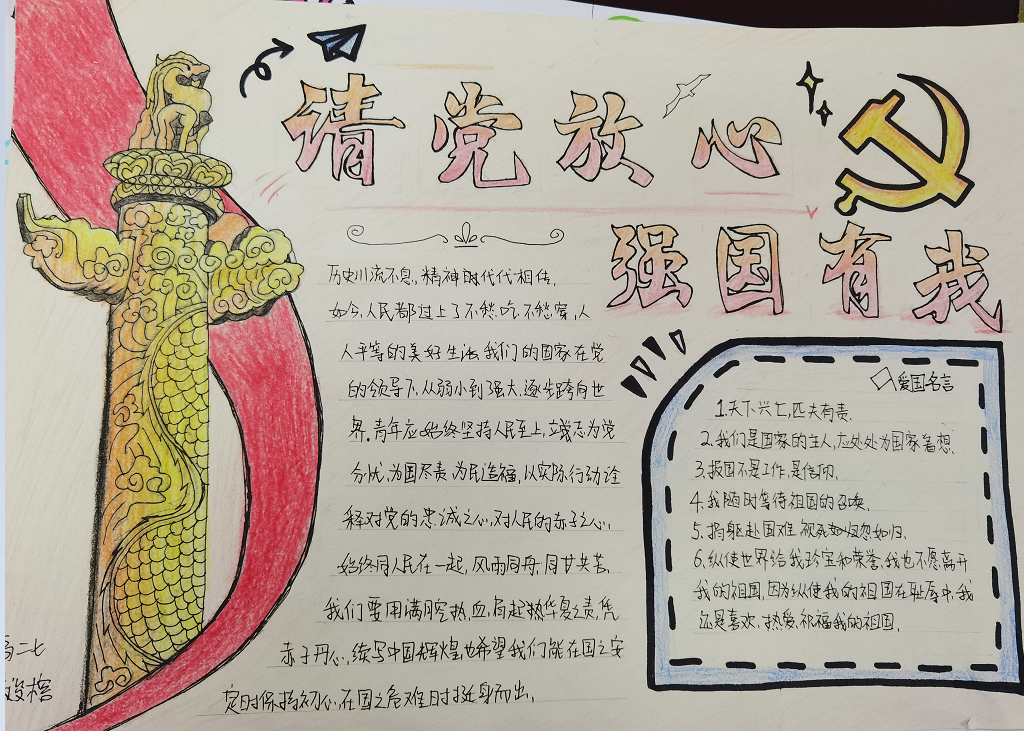 请党放心
强国有我
历史川流不息，精神时代代相传，
如今，人民都过上了不愁吃、不愁穿，人
人平等的美好生活，我们的国家在党
的领导下，从弱小到强大，逐步跨向世
界。青年应始终坚持人民至上，立誓志为党
分忧，为国尽责，为民造福，以实际行动诠
释对党的忠诚之心，对人民的赤子之心，
始终同人民在一起，风雨同舟、同甘共苦。
我们要用满腔热血，肩起热华夏之责，凭
赤子丹心，续写中国辉煌，也希望我们能在国之安
定时保持初心，在国之危难时挺身而出。
爱国名言
1.天下兴亡，匹夫有责。
2.我们是国家的主人，应处处为国家着想。
3.报国不是工作，是信仰。
4.我随时等待祖国的召唤。
5.捐躯赴国难，视死如归忽如归。
6.纵使世界给我珍宝和荣誉，我也不愿离开
我的祖国，因为纵使我的祖国在耻辱中，我
还是喜欢、热爱、祈福我的祖国。
二七